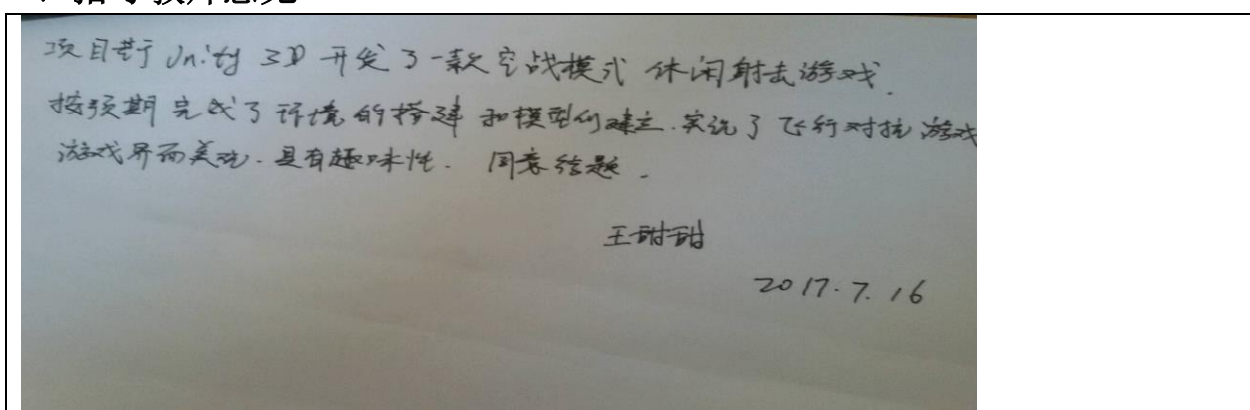 项目基于 Unity 3D 开发了一款空战模式 休闲射击游戏.
按预期完成了环境的搭建和模型的建立.实现了飞行对抗游戏
游戏界面美观.具有趣味性. 同意结题.
王甜甜
2017.7.16